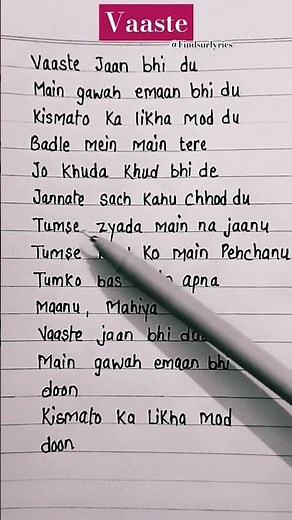 Vaaste
@Findsurlyrics
Vaaste Jaan bhi du
Main gawah emaan bhi du
Kismato Ka likha mod du
Badle mein main tere
Jo Khuda Khud bhi de
Jannate sach Kahu Chhod du
Tumse zyada main na jaanu
Tumse Ko main Pehchanu
Tumko bas apna
Maanu, Mahiya
Vaaste jaan bhi
Main gawah emaan bhi
doon
Kismato Ka Likha mod
doon